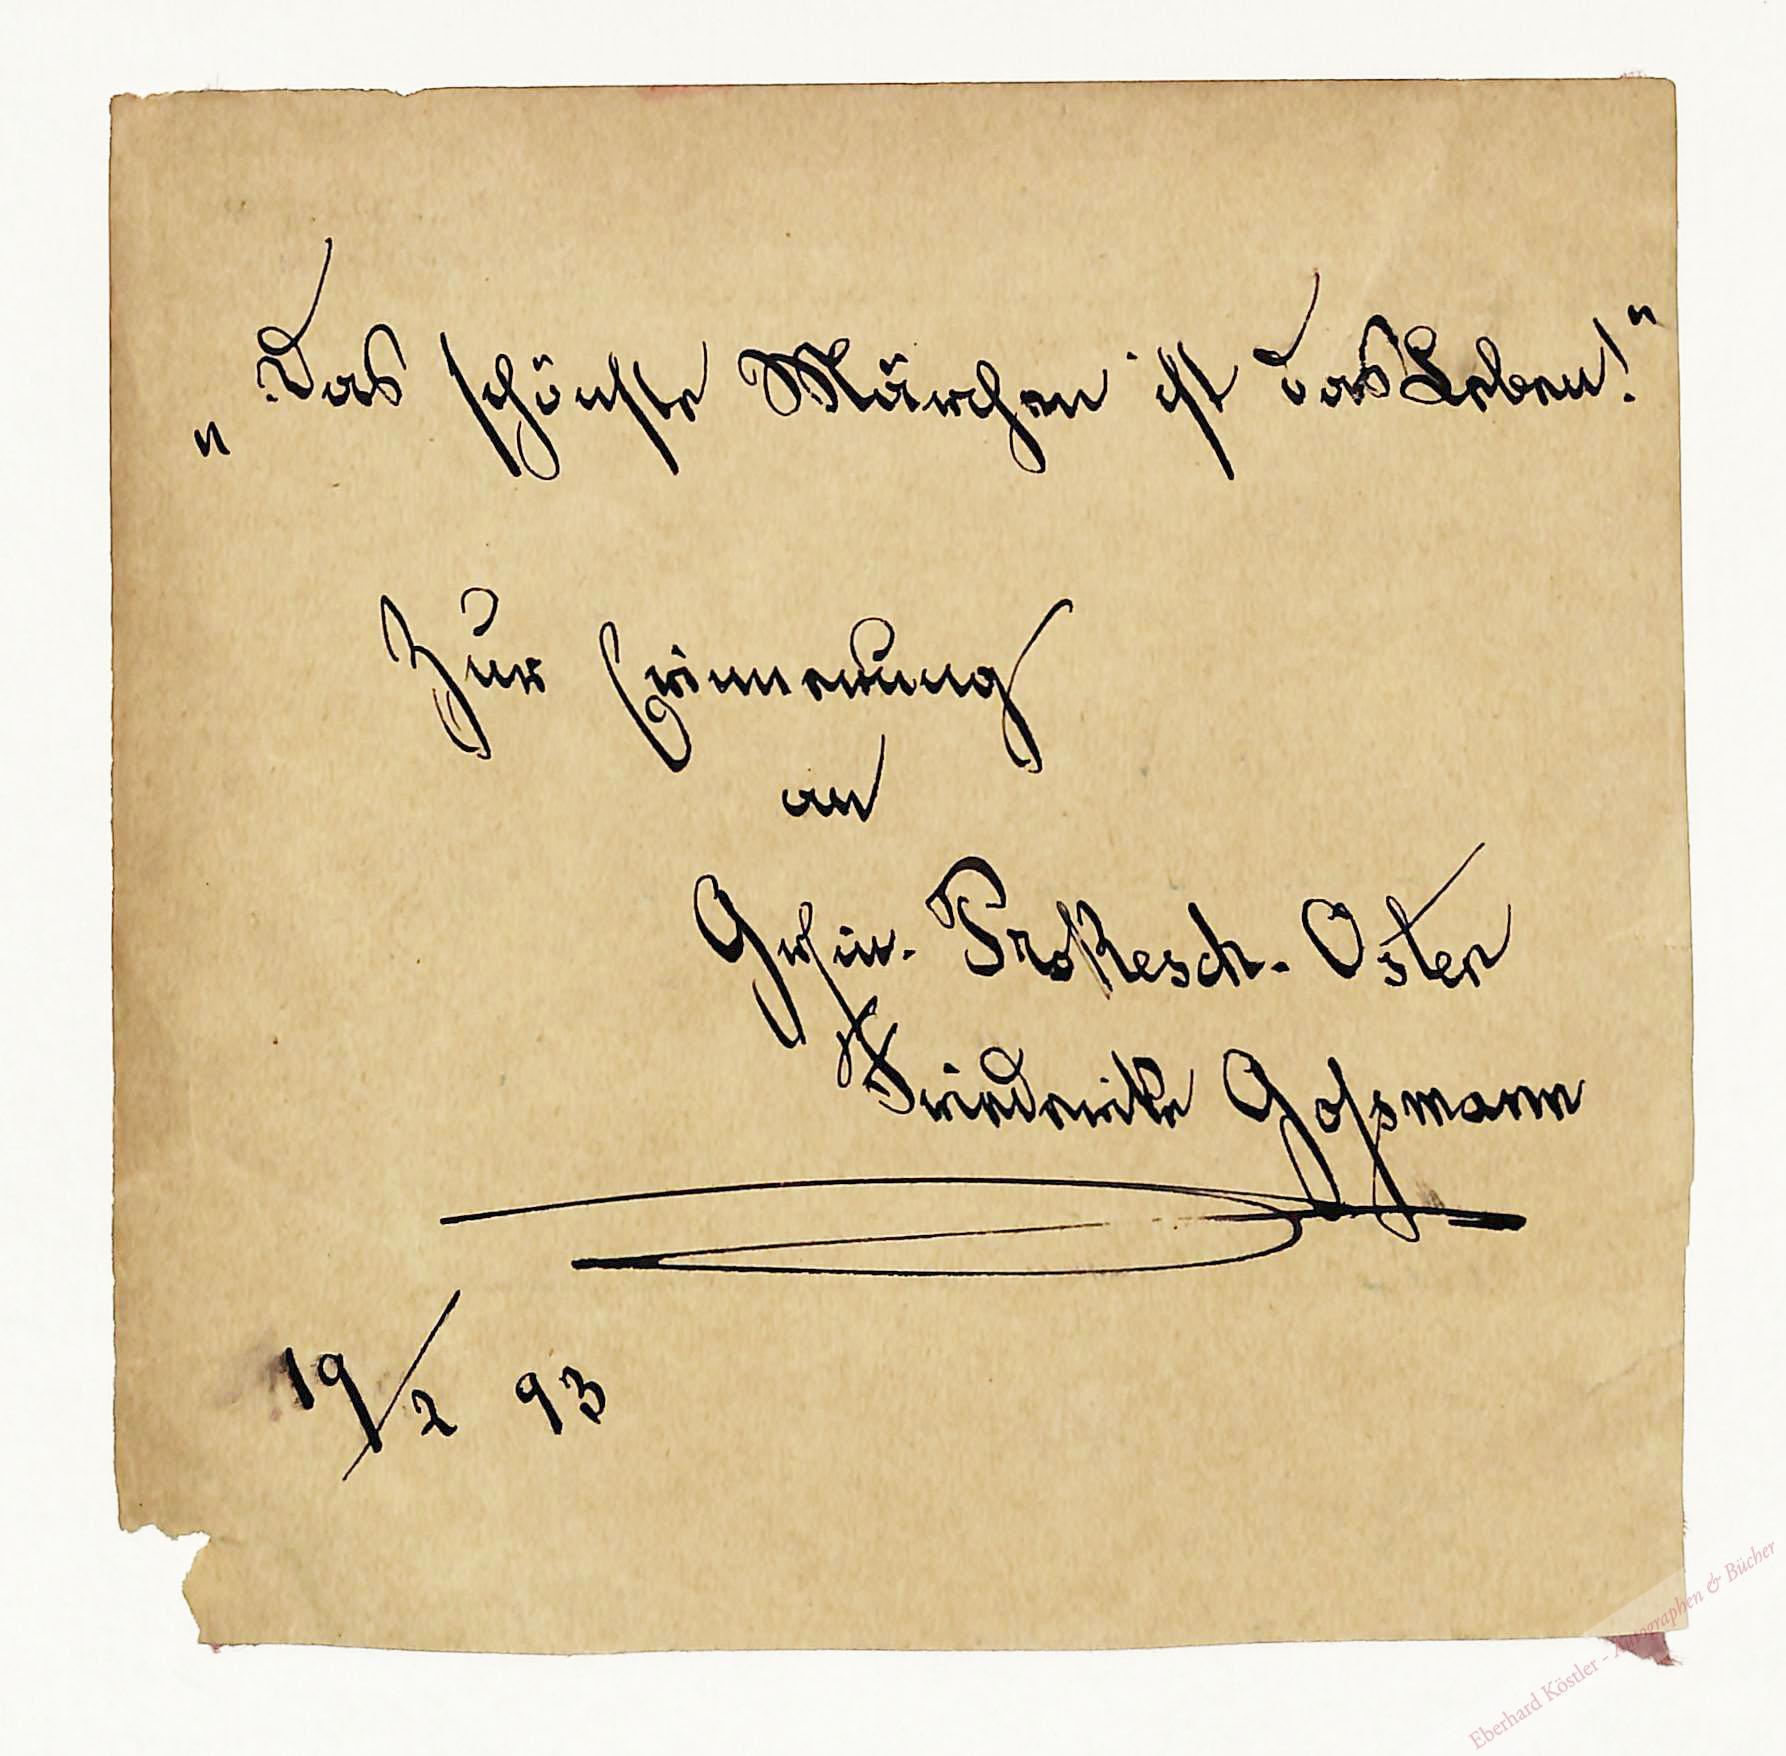 „Das schönste Märchen ist das Leben!“
Zur Erinnerung
an
Gräfin. Prokesch-Osten
Friederike Gossmann
19/2 93
Eberhard Köstler - Autographen & Bücher